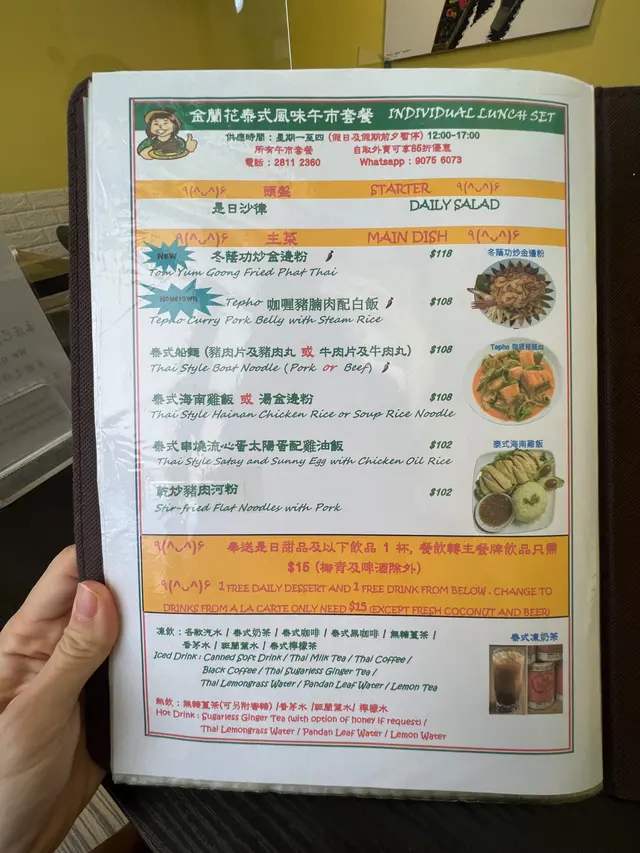 金蘭花泰式風味午市套餐 INDIVIDUAL LUNCH SET
供應時間：星期一至四 (假日及假期前夕暫停) 12:00-17:00
所有午市套餐 自取外賣可享85折優惠
電話：2811 2360 Whatsapp：9075 6073
٩(^ᴗ^)۶ 頭盤 STARTER ٩(^ᴗ^)۶
是日沙律 DAILY SALAD
٩(^ᴗ^)۶ 主菜 MAIN DISH ٩(^ᴗ^)۶
NEW 冬蔭功炒金邊粉 $118
Tom Yum Goong Fried Phat Thai
冬蔭功炒金邊粉
HOMETOWN Tepho 咖喱豬腩肉配白飯 $108
Tepho Curry Pork Belly with Steam Rice
泰式船麵 (豬肉片及豬肉丸 或 牛肉片及牛肉丸) $108
Thai Style Boat Noodle (Pork or Beef)
Tepho 咖喱豬腩肉
泰式海南雞飯 或 湯金邊粉 $108
Thai Style Hainan Chicken Rice or Soup Rice Noodle
泰式串燒流心蛋太陽蛋配雞油飯 $102
Thai Style Satay and Sunny Egg with Chicken Oil Rice
泰式海南雞飯
乾炒豬肉河粉 $102
Stir-fried Flat Noodles with Pork
٩(^ᴗ^)۶ 奉送是日甜品及以下飲品 1 杯, 餐飲轉主餐牌飲品只需
$15 (椰青及啤酒除外)
٩(^ᴗ^)۶ 1 FREE DAILY DESSERT AND 1 FREE DRINK FROM BELOW. CHANGE TO
DRINKS FROM A LA CARTE ONLY NEED $15 (EXCEPT FRESH COCONUT AND BEER)
凍飲：各款汽水 / 泰式奶茶 / 泰式咖啡 / 泰式黑咖啡 / 無糖薑茶 /
香茅水 / 斑蘭葉水 / 泰式檸檬茶
Iced Drink : Canned Soft Drink / Thai Milk Tea / Thai Coffee /
Black Coffee / Thai Sugarless Ginger Tea /
Thai Lemongrass Water / Pandan Leaf Water / Lemon Tea
泰式凍奶茶
熱飲：無糖薑茶(可另附蜂糖) /香茅水 /斑蘭葉水/ 檸檬水
Hot Drink : Sugarless Ginger Tea (with option of honey if request) /
Thai Lemongrass Water / Pandan Leaf Water / Lemon Water